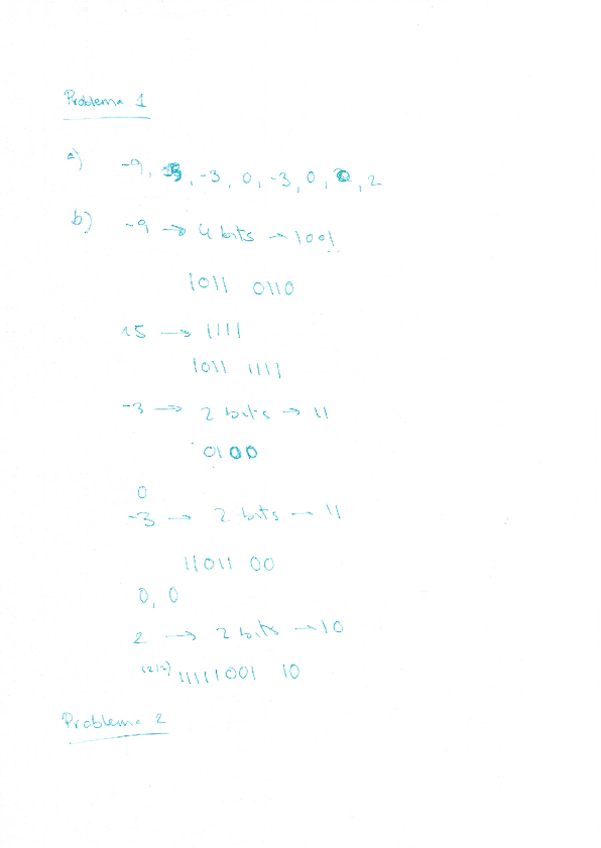 Problema 1
a) -9, 15, -3, 0, -3, 0, 0, 2
b) -9 → 4 bits → 1001
1011 0110
15 → 1111
1011 1111
-3 → 2 bits → 11
0100
0
-3 → 2 bits → 11
11011 00
0, 0
2 → 2 bits → 10
(2/2) 11111001 10
Problema 2